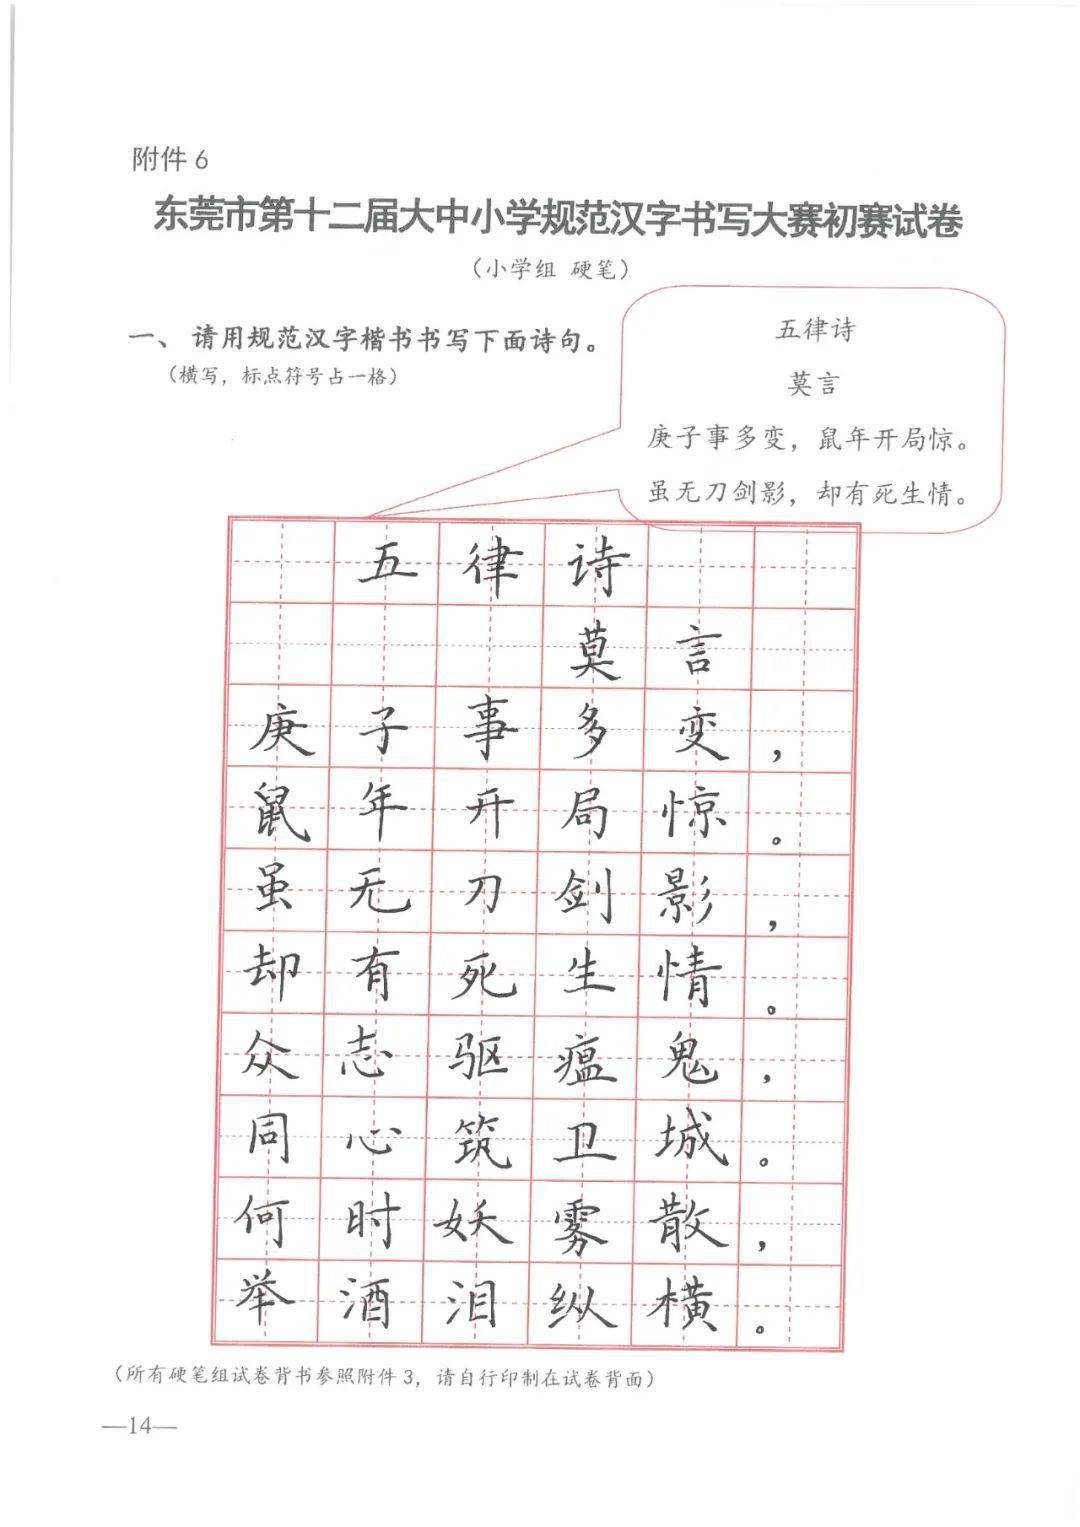 附件 6
东莞市第十二届大中小学规范汉字书写大赛初赛试卷
（小学组 硬笔）
一、 请用规范汉字楷书书写下面诗句。
（横写，标点符号占一格）
五律诗
莫言
庚子事多变，鼠年开局惊。
虽无刀剑影，却有死生情。
五律诗
莫言
庚子事多变，
鼠年开局惊。
虽无刀剑影，
却有死生情。
众志驱瘟鬼，
同心筑卫城。
何时妖雾散，
举酒泪纵横。
（所有硬笔组试卷背书参照附件 3，请自行印制在试卷背面）
—14—